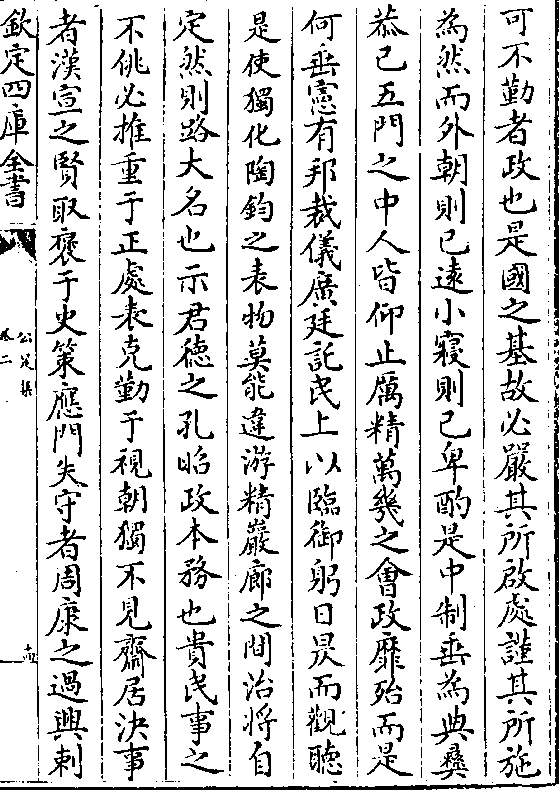 可不勤者政也是國之基故必嚴其所啟處謹其所施
為然而外朝則已遠小寢則已卑酌是中制垂為典彛
恭已五門之中人皆仰止厲精萬幾之會政靡殆而是
何垂憲有邦裁儀廣廷託民上以臨御躬日昃而觀聽
是使獨化陶鈞之表物莫能違游精巖廊之間治將自
定然則路大名也示君德之孔昭政本務也貴民事之
不佻必推重于正處表克勤于視朝獨不見齋居決事
者漢宣之賢取褒于史策應門失守者周康之過興刺
欽定四庫全書
公是集
卷二